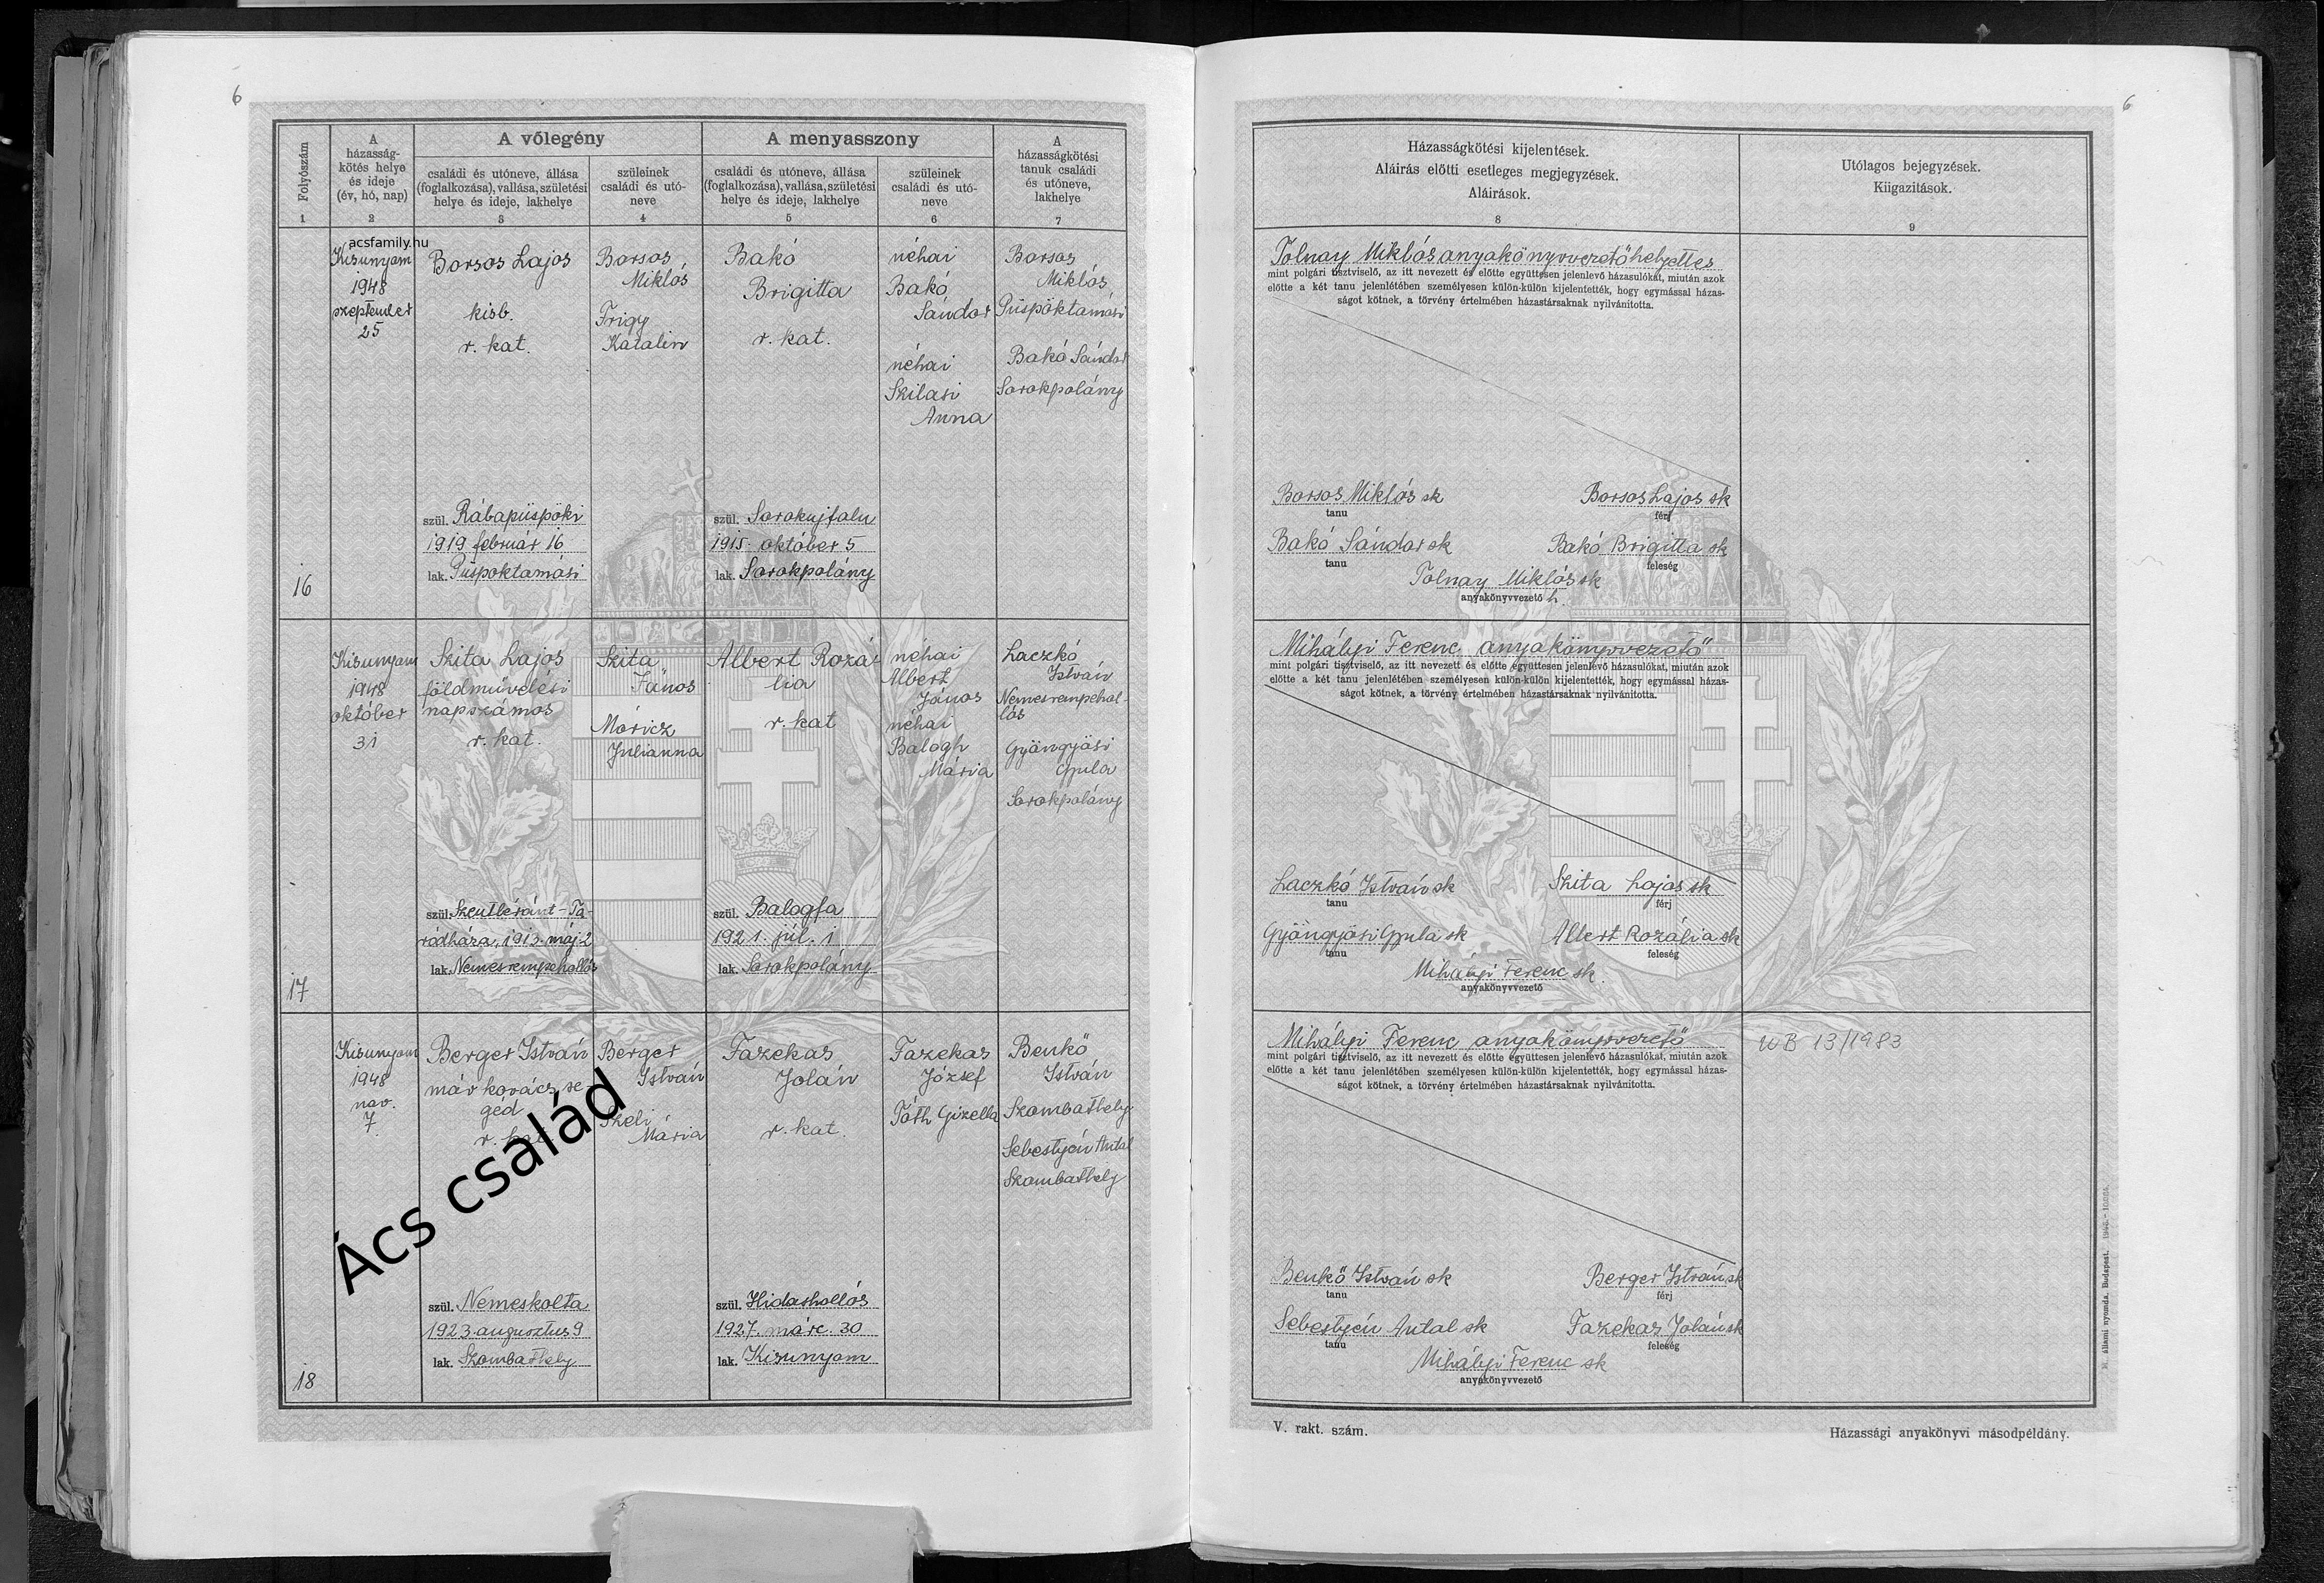 6
6
Folyószám
1
A
házasság-
kötés helye
és ideje
(év, hó, nap)
2
A vőlegény
családi és utóneve, állása
(foglalkozása), vallása, születési
helye és ideje, lakhelye
3
szüleinek
családi és utó-
neve
4
A menyasszony
családi és utóneve, állása
(foglalkozása), vallása, születési
helye és ideje, lakhelye
5
szüleinek
családi és utó-
neve
6
A
házasságkötési
tanuk családi
és utóneve,
lakhelye
7
acsfamily.hu
16
Kisunyom
1948
szeptember
25
Borsos Lajos
kisb.
r. kat.
szül. Rábapüspöki
1919 február 16
lak. Püspöktamási
Borsos
Miklós
Frigy
Katalin
Bakó
Brigitta
r. kat.
szül. Sorokujfalu
1915. október 5
lak. Sorokpolány
néhai
Bakó
Sándor
néhai
Szilasi
Anna
Borsos
Miklós
Püspöktamási
Bakó Sándor
Sorokpolány
17
Kisunyom
1948
október
31
Szita Lajos
földmüvelési
napszámos
r. kat.
ródháza, 1913. máj. 2
lak. Nemesrempehollós
Szita
János
Móricz
Julianna
Albert Rozá-
lia
r. kat
szül. Balogfa
1921. júl. 1
lak. Sorokpolány
néhai
Albert
János
néhai
Balogh
Mária
Laczkó
István
Nemesrempehol-
lós
Gyöngyösi
Gyula
Sorokpolány
18
Kisunyom
1948
nov.
7.
Berger István
máv kovács se-
géd
r. kat
szül. Nemeskolta
1923 augusztus 9
lak. Szombathely
Berger
István
Szeli
Mária
Fazekas
Jolán
r. kat.
szül. Hidashollós
1927. márc. 30
lak. Kisunyom
Fazekas
József
Tóth Gizella
Benkő
István
Szombathely
Sebestyén Antal
Szombathely
Ács család
Házasságkötési kijelentések.
Aláírás előtti esetleges megjegyzések.
Aláírások.
8
Utólagos bejegyzések.
Kiigazítások.
9
Tolnay Miklós anyakönyvvezetőhelyettes
mint polgári tisztviselő, az itt nevezett és előtte együttesen jelenlevő házasulókat, miután azok
előtte a két tanu jelenlétében személyesen külön-külön kijelentették, hogy egymással házas-
ságot kötnek, a törvény értelmében házastársaknak nyilvánította.
Borsos Miklós sk
tanu
Borsos Lajos sk
férj
Bakó Sándor sk
tanu
Bakó Brigitta sk
feleség
Tolnay Miklós sk
anyakönyvvezető h.
Mihályi Ferenc anyakönyvvezető
mint polgári tisztviselő, az itt nevezett és előtte együttesen jelenlevő házasulókat, miután azok
előtte a két tanu jelenlétében személyesen külön-külön kijelentették, hogy egymással házas-
ságot kötnek, a törvény értelmében házastársaknak nyilvánította.
Laczkó István sk
tanu
Szita Lajos sk
férj
Gyöngyösi Gyula sk
tanu
Albert Rozália sk
feleség
Mihályi Ferenc sk.
anyakönyvvezető
Mihályi Ferenc anyakönyvvezető
mint polgári tisztviselő, az itt nevezett és előtte együttesen jelenlevő házasulókat, miután azok
előtte a két tanu jelenlétében személyesen külön-külön kijelentették, hogy egymással házas-
ságot kötnek, a törvény értelmében házastársaknak nyilvánította.
13/1983
Benkő István sk
tanu
Berger István sk
férj
Sebestyén Antal sk
tanu
Fazekas Jolán sk
feleség
Mihályi Ferenc sk
anyakönyvvezető
V. rakt. szám.
Házassági anyakönyvi másodpéldány.
állami nyomda. Budapest.